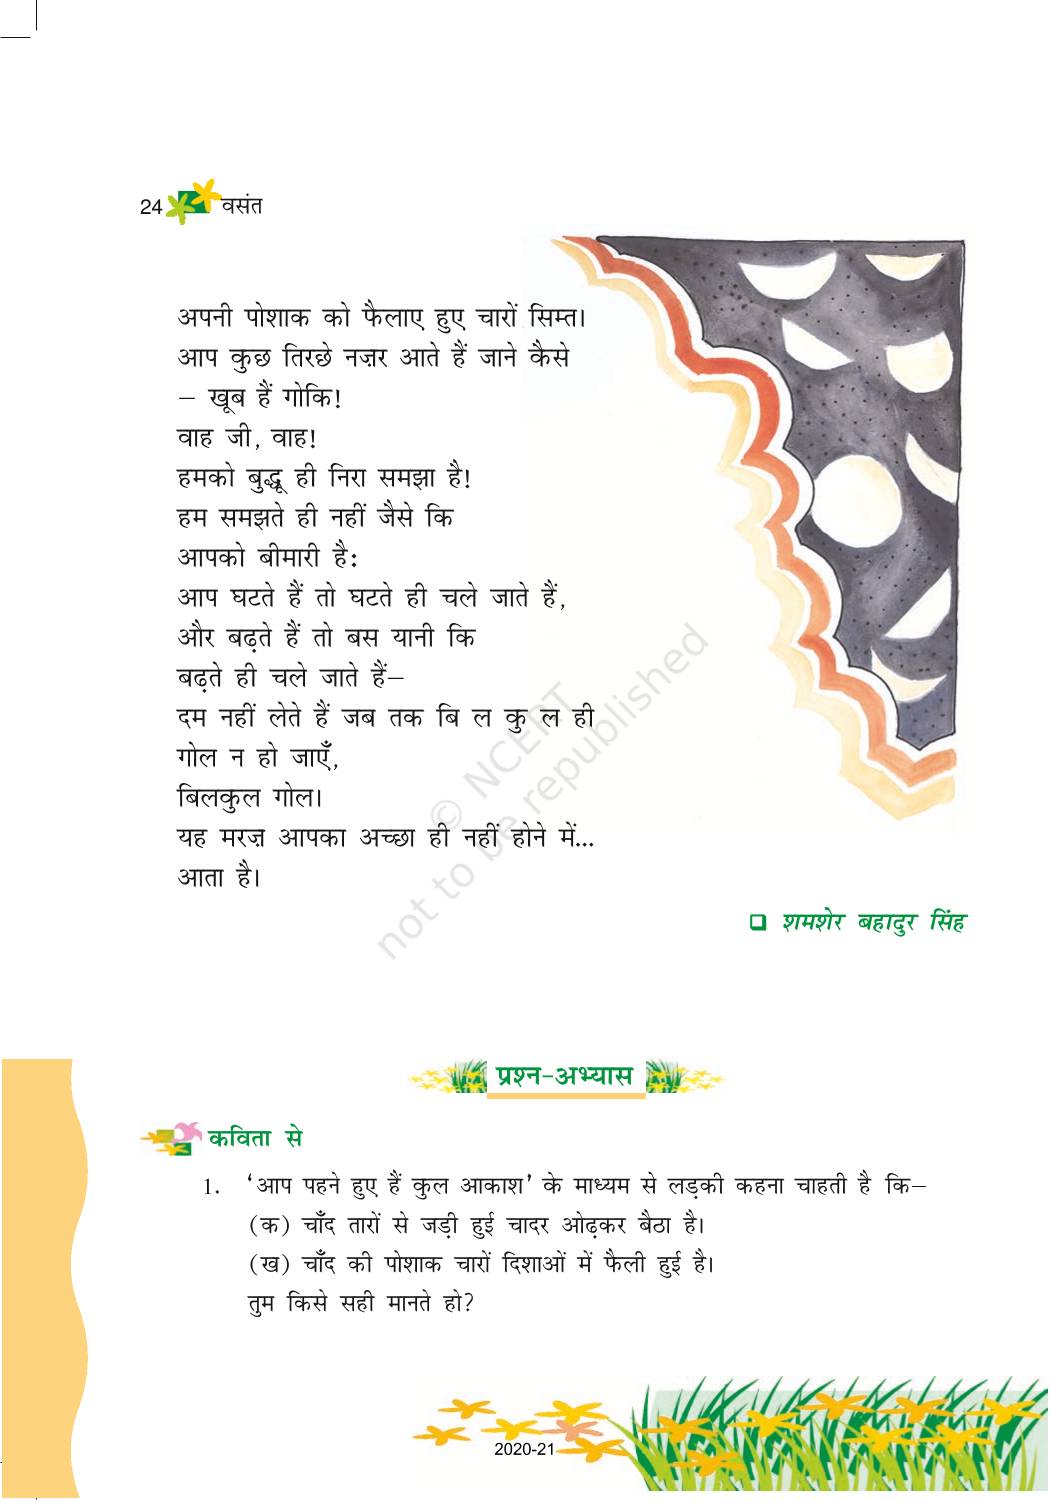 24 वसंत
अपनी पोशाक को फैलाए हुए चारों सिम्त।
आप कुछ तिरछे नज़र आते हैं जाने कैसे
– खूब हैं गोकि!
वाह जी, वाह!
हमको बुद्धू ही निरा समझा है!
हम समझते ही नहीं जैसे कि
आपको बीमारी है:
आप घटते हैं तो घटते ही चले जाते हैं,
और बढ़ते हैं तो बस यानी कि
बढ़ते ही चले जाते हैं–
दम नहीं लेते हैं जब तक बि ल कु ल ही
गोल न हो जाएँ,
बिलकुल गोल।
यह मरज़ आपका अच्छा ही नहीं होने में...
आता है।
© NCERT
not to be republished
❑ शमशेर बहादुर सिंह
प्रश्न-अभ्यास
कविता से
1. 'आप पहने हुए हैं कुल आकाश' के माध्यम से लड़की कहना चाहती है कि–
(क) चाँद तारों से जड़ी हुई चादर ओढ़कर बैठा है।
(ख) चाँद की पोशाक चारों दिशाओं में फैली हुई है।
तुम किसे सही मानते हो?
2020-21